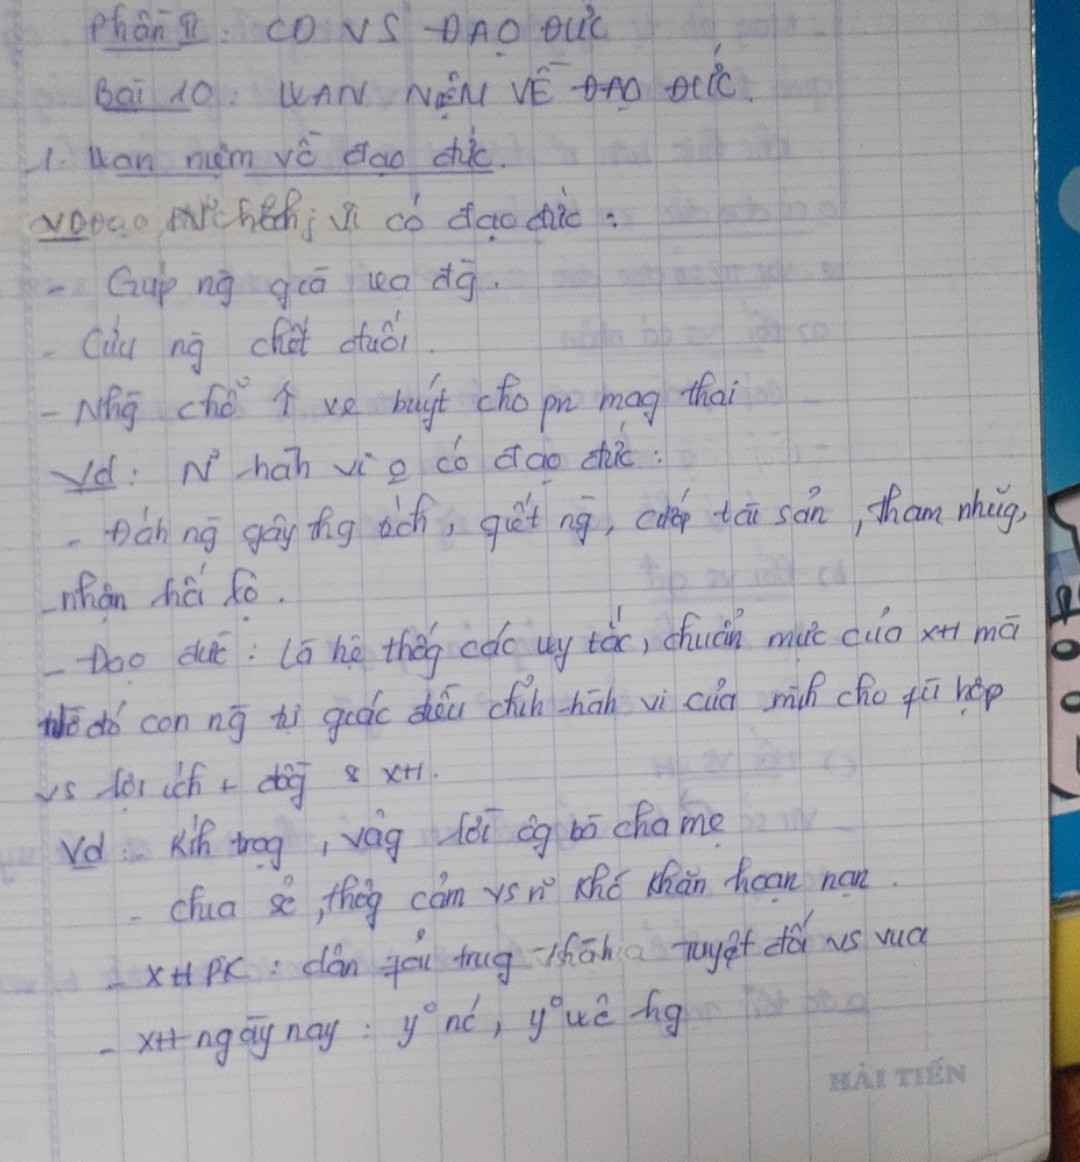 Phần II: CD VS ĐẠO ĐỨC
Bài 10: UAN NIỆM VỀ ĐẠO ĐỨC.
1. Uan niệm về đạo đức.
có đạo đức:
- Gúp ng̃ già ua đg̃.
- Cứu ng̃ chết đuối.
- Nhg̃ chỗ ↑ xe buýt cho pn mag thai
Vd: N° hàh vi o có đạo đức:
- Đáh ng̃ gây thg tích, giết ng̃, cướp tài sản, tham nhũg,
nhận hối lộ.
- Đạo đức: Là hệ thốg các uy tắc, chuẩn mực của XH mà
nhờ đó con ng̃ tự giác điều chỉh hàh vi của mìh cho fù hợp
vs lợi ích + đồg & XH.
Vd: Kíh trọg, vâg lời ôg bà cha mẹ
- chia sẻ, thôg cảm vs n° khó khăn hoạn nạn.
- XHPK: dân fải trug thàh tuyệt đối vs vua
- XH ngày nay: y° nć, y° uê hg
HẢI TIẾN